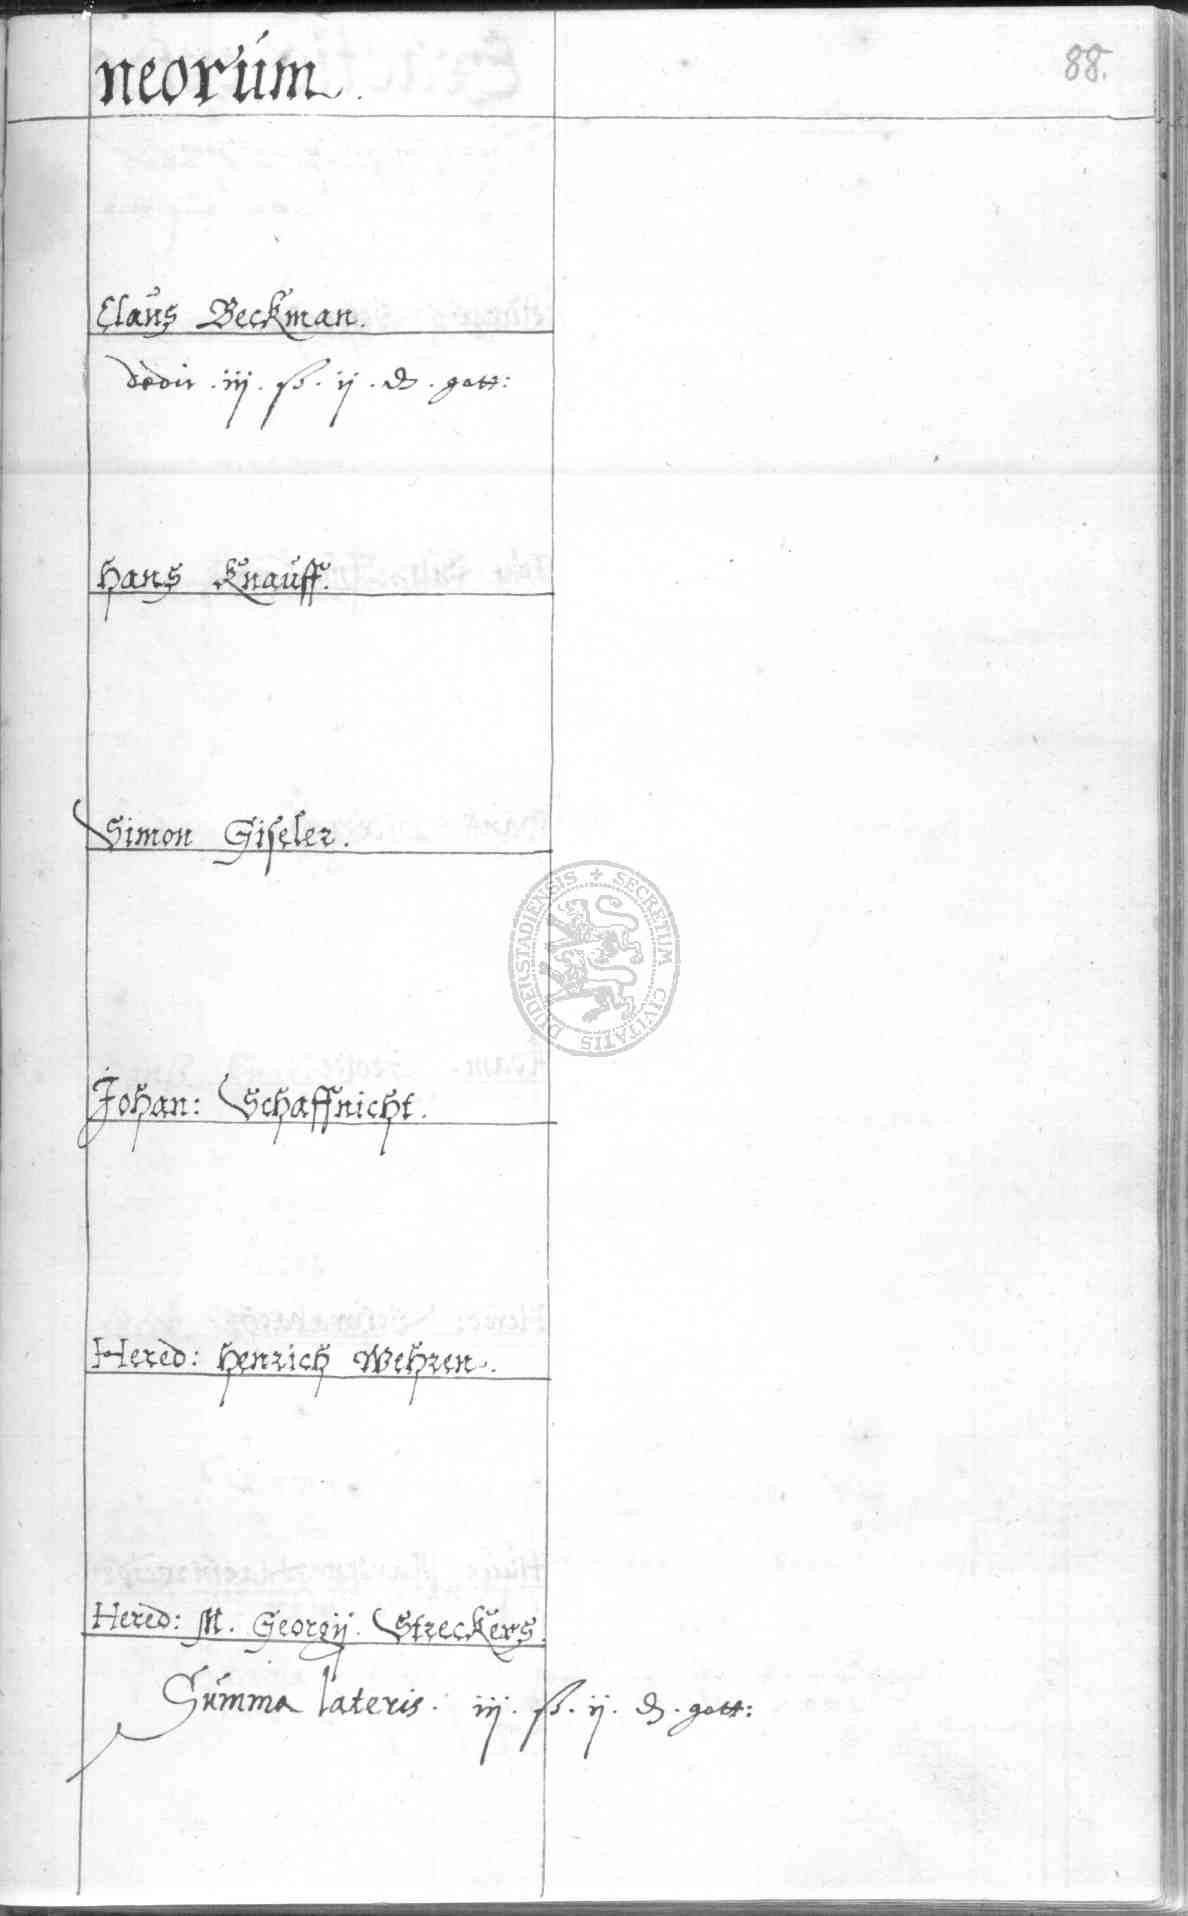 neorúm.
88.
Claus Beckman.
dedit . iij . ß . ij . ₰ . gott:
Hans Knauff.
Simon Giseler.
Johan: Schaffnicht.
Hered: Henrich Wehren.
Hered: M. Georgij. Streckers.
Summa lateris. iij. ß. ij. ₰. gott:
SECRETUM CIVITATIS DUDERSTADIENSIS